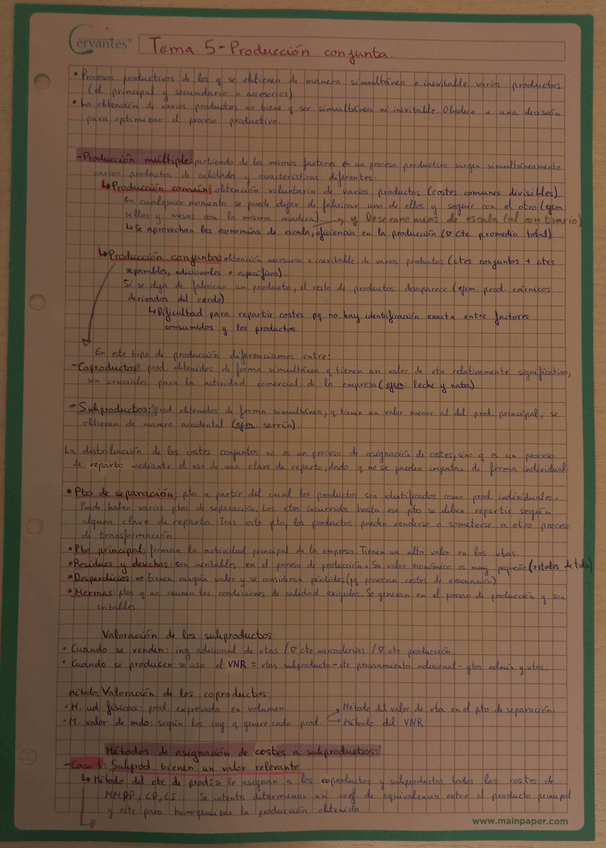 Cervantes®
Tema 5 - Producción conjunta.
• Procesos productivos de los q se obtienen de manera simultánea e inevitable varios productos
(el principal y secundario o accesorios)
• La obtención de varios productos no tiene q ser simultánea ni inevitable. Obedece a una decisión
para optimizar el proceso productivo.
- Producción múltiple: partiendo de los mismos factores en un proceso productivo surgen simultáneamente
varios productos de calidades y características diferentes:
↳ Producción común: obtención voluntaria de varios productos (costes comunes divisibles).
En cualquier momento se puede dejar de fabricar uno de ellos y seguir con el otro (ejm
sillas y mesas con la misma madera) → y Deseconomías de escala (al contrario)
↳ Se aprovechan las economías de escala, eficiencia en la producción (∇ cte promedio total)
↳ Producción conjunta: obtención necesaria e inevitable de varios productos (ctes conjuntos + ctes
separables, adicionales o específicos).
Si se deja de fabricar un producto, el resto de productos desaparece (ejm prod. cárnicos
derivados del cerdo)
↳ Dificultad para repartir costes pq no hay identificación exacta entre factores
consumidos y los productos.
En este tipo de producción diferenciamos entre:
- Coproductos: prod. obtenidos de forma simultánea q tienen un valor de vta relativamente significativo,
son cruciales para la actividad comercial de la empresa (ejm: leche y nata).
- Subproductos: prod. obtenidos de forma simultánea, q tienen un valor menor al del prod. principal, se
obtienen de manera accidental (ejm serrín).
La distribución de los costes conjuntos no es un proceso de asignación de costes, sino q es un proceso
de reparto mediante el uso de una clave de reparto, dado q no se pueden imputar de forma individual.
• Pto de separación: pto a partir del cual los productos son identificados como prod. individuales.
Puede haber varios ptos de separación. Los ctes incurridos hasta ese pto se deben repartir según
alguna clave de reparto. Tras este pto, los productos pueden venderse o someterse a otro proceso
de transformación.
• Pto principal: forman la actividad principal de la empresa. Tienen un alto valor en las vtas.
• Residuos y desechos: son inevitables en el proceso de producción. Su valor económico es muy pequeño (retales de tela)
• Desperdicios: no tienen ningún valor y se consideran pérdidas (pq provocan costes de evacuación)
• Mermas: ptos q no reúnen las condiciones de calidad exigidos. Se generan en el proceso de producción y son
inevitables.
Valoración de los subproductos.
• Cuando se venden: ing adicional de vtas / ∇ cte mercaderías / ∇ cte producción
• Cuando se producen: se usa el VNR = vtas subproducto - cte procesamiento adicional - gtos admin y vtas.
Métodos Valoración de los coproductos
• M. ud físicas: prod. expresada en volumen.
• M. valor de mdo: según los ing. q genere cada prod. → Método del valor de vta en el pto de separación.
→ Método del VNR
Métodos de asignación de costes a subproductos:
- Caso 1: Subprod. tienen un valor relevante
↳ Método del cte de prod: se le asignan a los coproductos y subproductos todos los costes de
MMPP, CD, CI. Se intenta determinar un coef. de equivalencia entre el producto principal
y este para homogeneizar la producción obtenida.
www.mainpaper.com